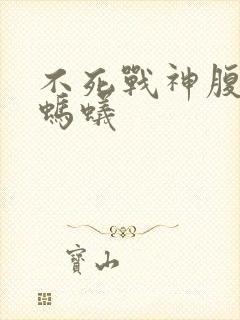 不死戰神腹
螞蟻
寶山